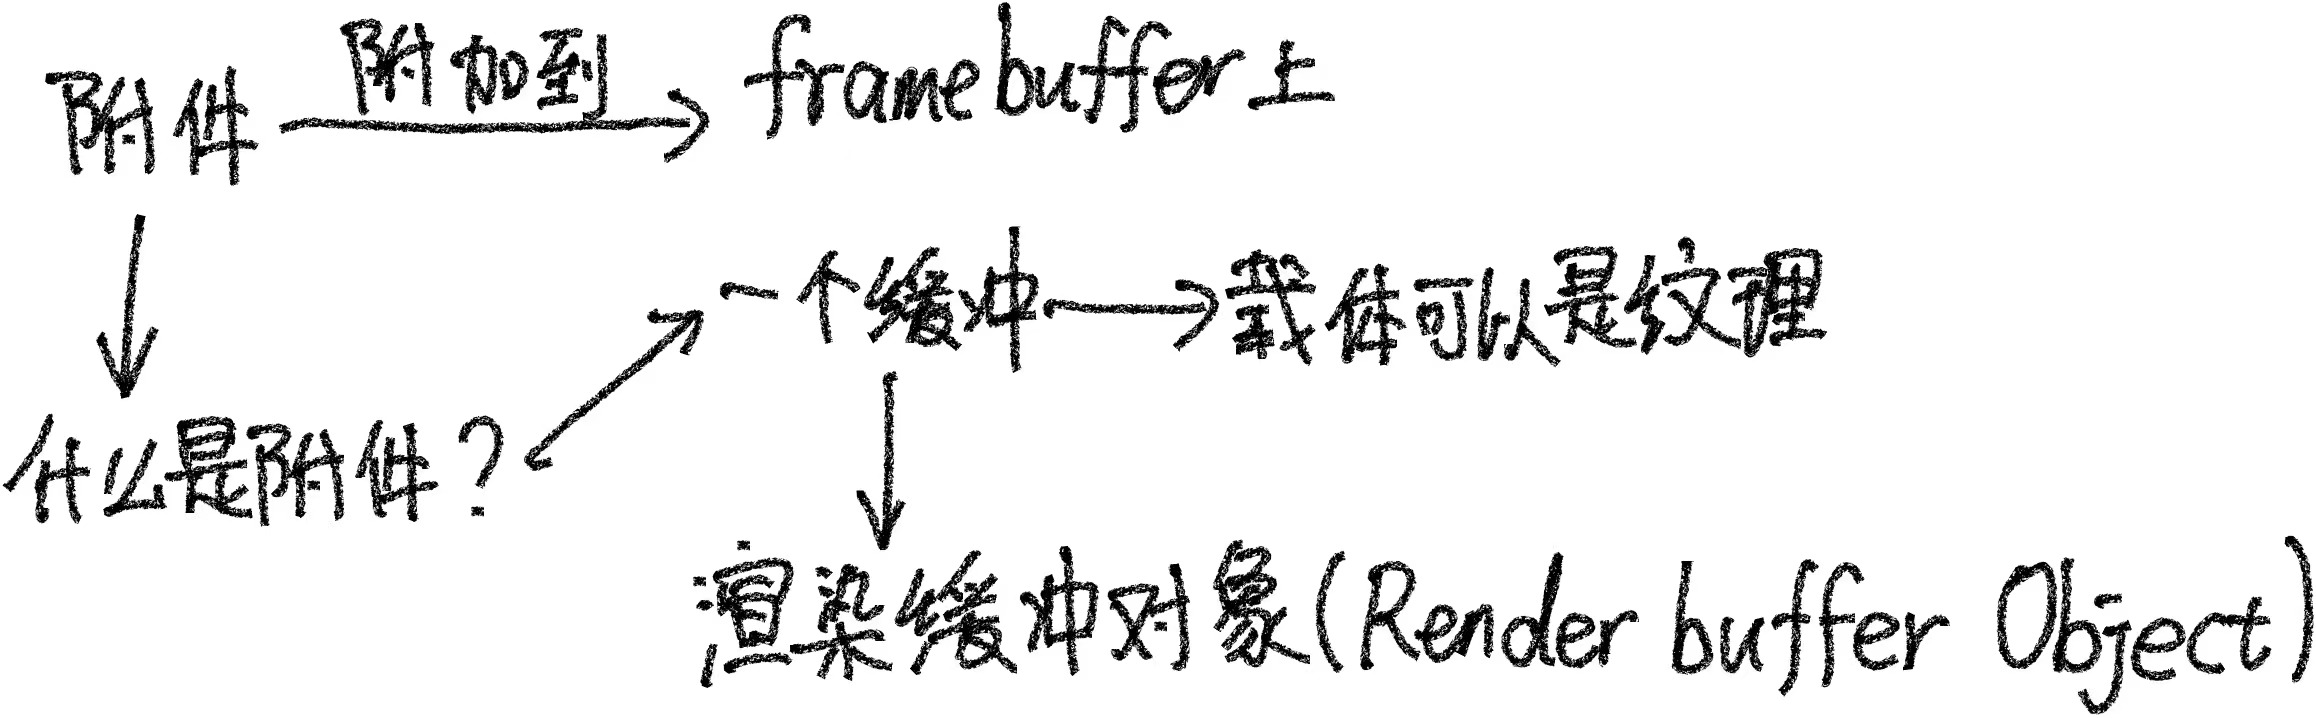 附件 附加到 framebuffer上
一个缓冲 载体可以是纹理
什么是附件?
渲染缓冲对象(Render buffer Object)